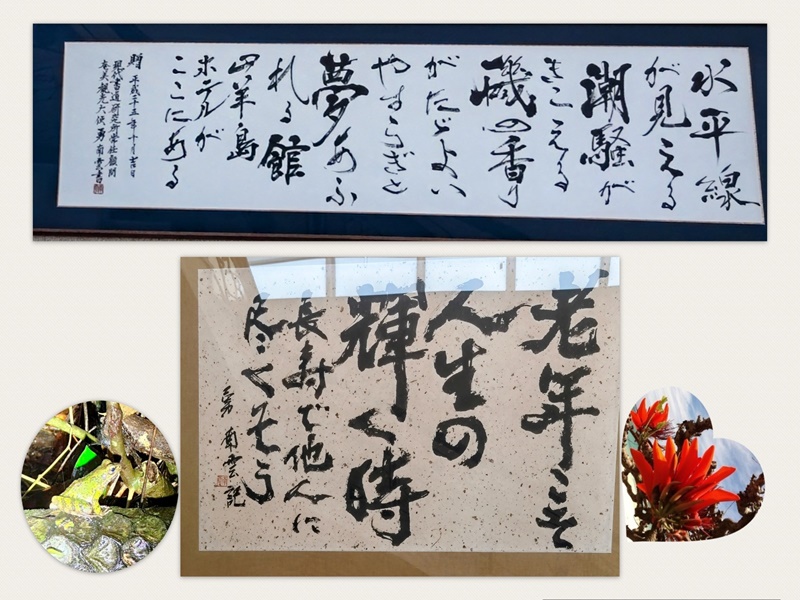 水平線
が見える
潮騒が
きこえる
磯の香り
がたゞよい
やすらぎと
夢あふ
れる館
山羊島
ホテルが
ここにある
贈 平成二十五年十月吉日
現代書道研究所常任顧問
奄美観光大使 勇 南雲書
老年こそ
人生の
輝く時
長寿で他人に
尽くそう
勇 南雲記